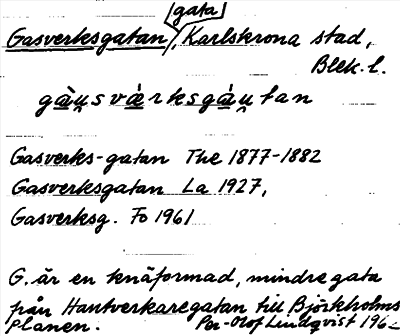 gata
Gasverksgatan, Karlskrona stad,
Blek. l.
gàusværksgàutan
Gasverks-gatan The 1877-1882
Gasverksgatan La 1927,
Gasverksg. Fo 1961
G. är en knäformad, mindre gata
från Hantverkaregatan till Björkholms
planen. Per-Olof Lindqvist 196